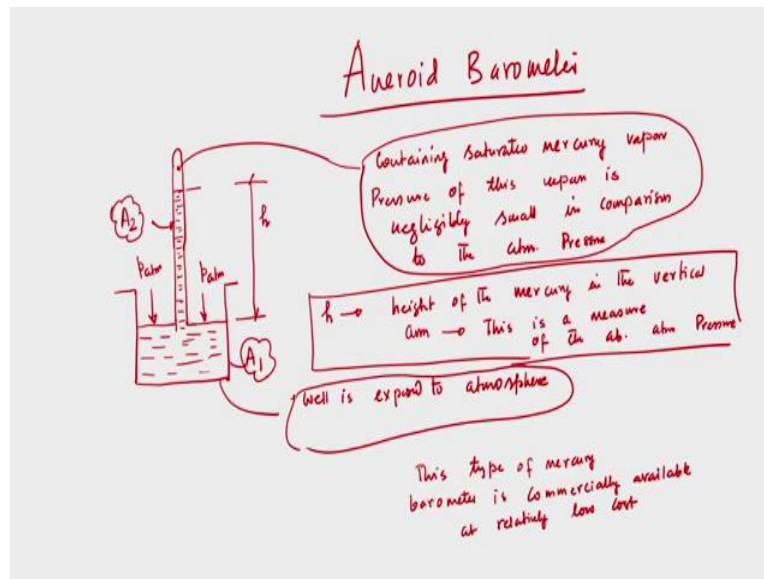 Aneroid Barometer
Containing saturated mercury vapor
Pressure of this vapor is
negligibly small in comparison
to the atm. Pressure
A2
h
Patm
Patm
h → height of the mercury in the vertical
arm → This is a measure
of the ab. atm Pressure
A1
Well is exposed to atmosphere
This type of mercury
barometer is commercially available
at relatively low cost